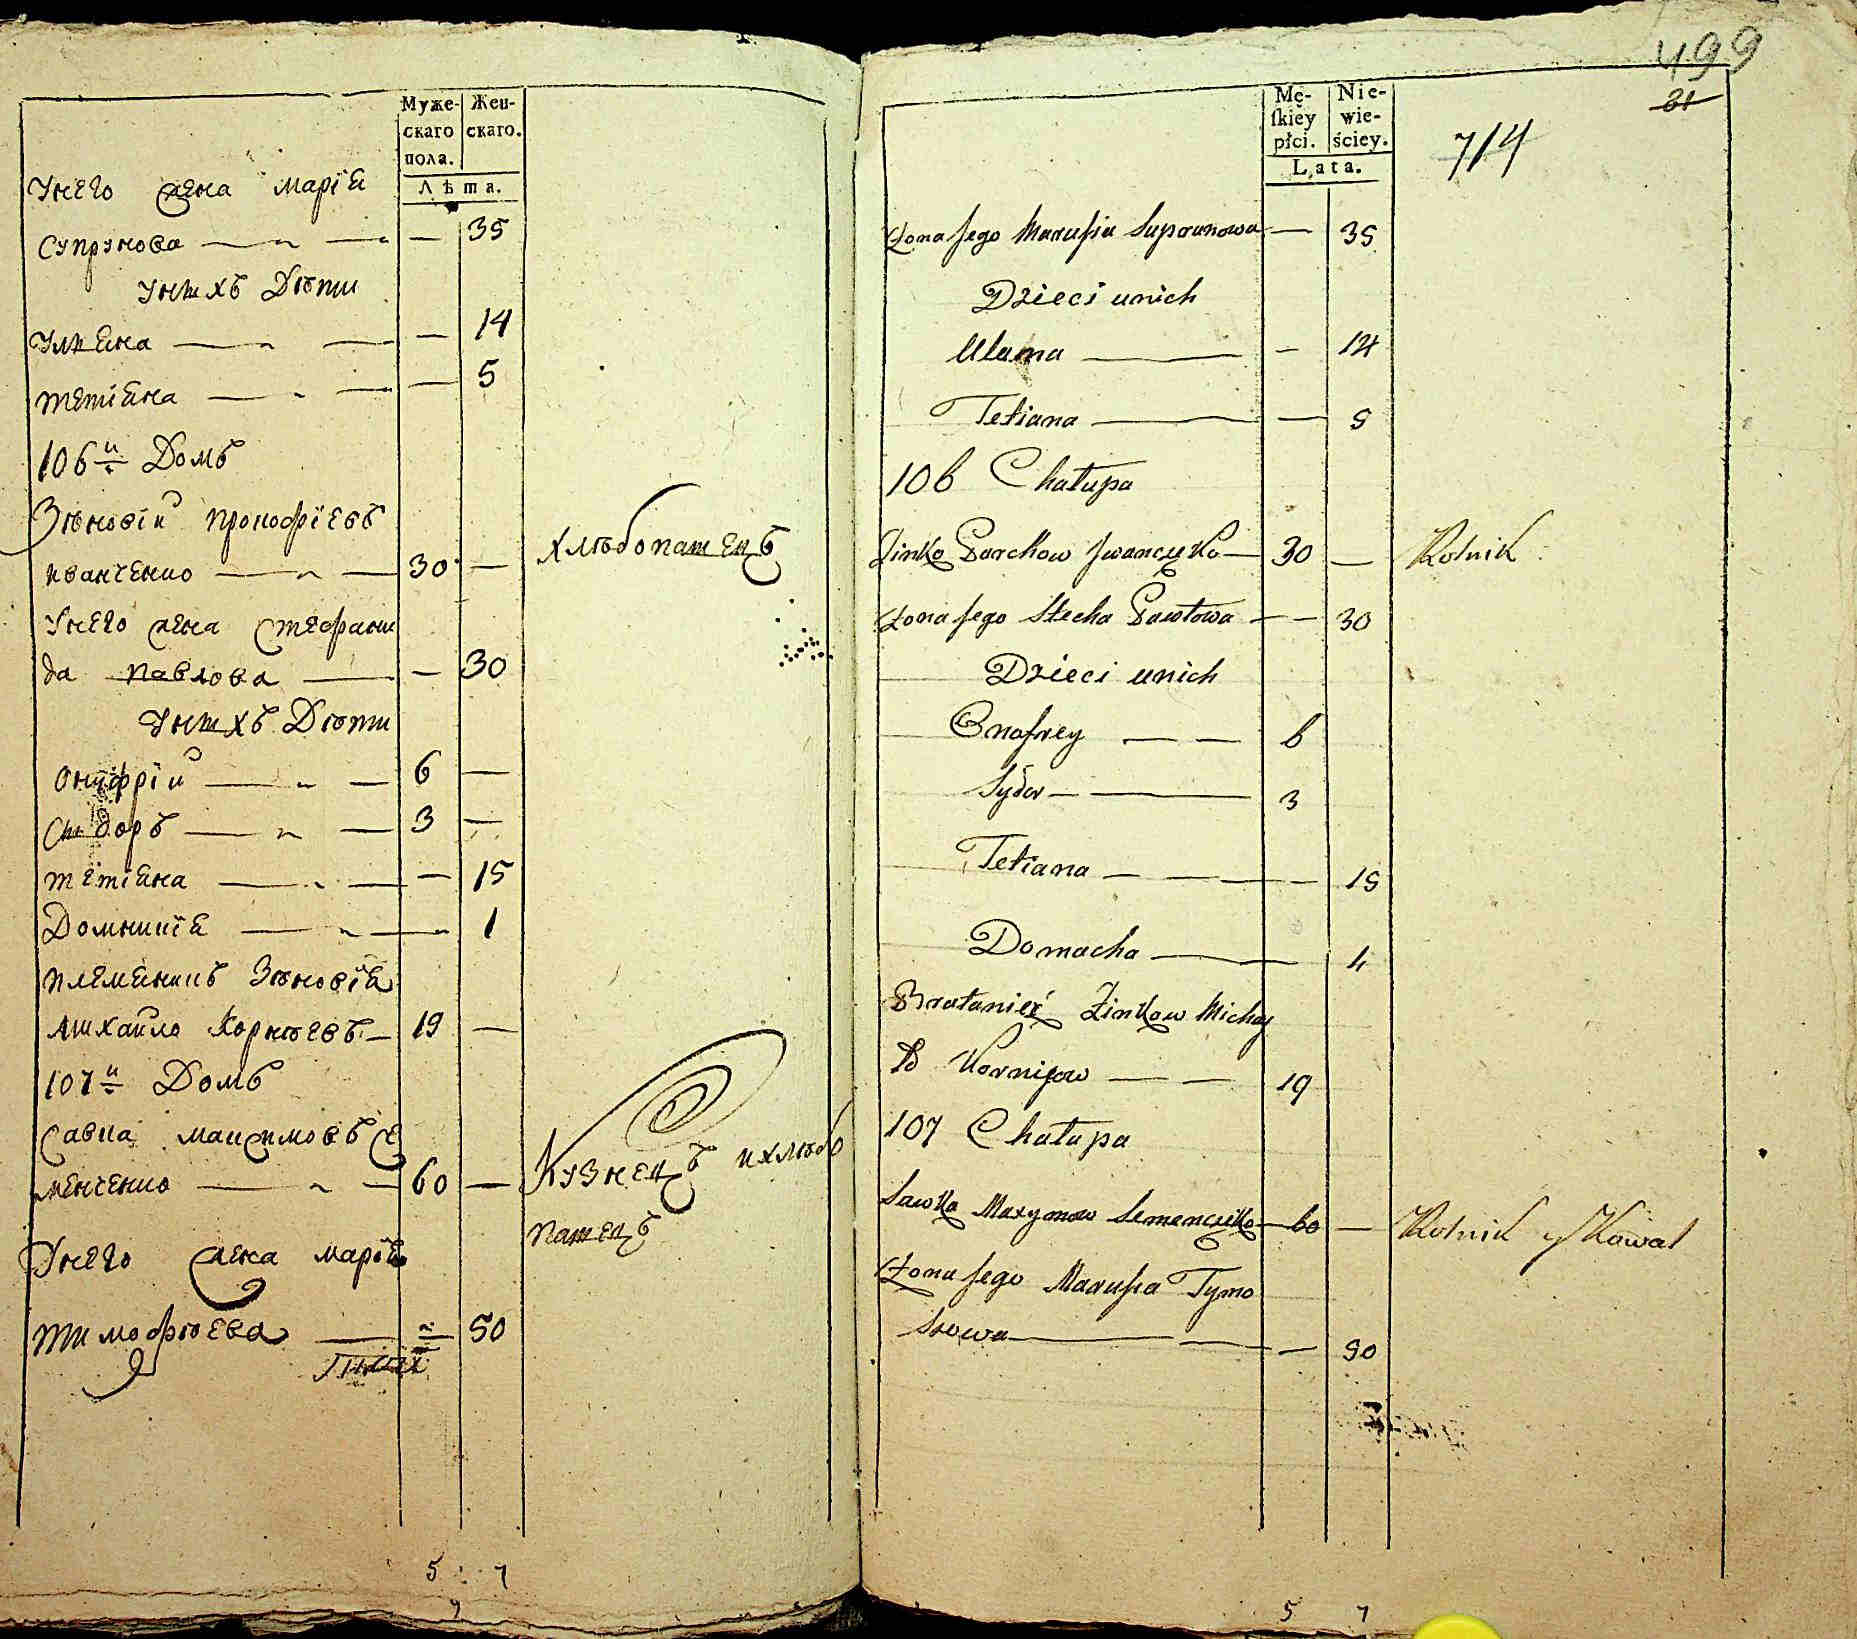 Муже-
скаго
пола.
Жен-
скаго.
Лѣта.
Унего жена Марїя
Супрунова — — — 35
Унихъ Дѣти
Уляна — — — 14
Тетіяна — — — 5
106й Домъ
Зѣновій Прокофїевъ
Иванченко — — 30 — Хлѣбопашецъ
Унего жена Стефани
да Павлова — — 30
Унихъ Дѣти
Онуфрїй — — 6 —
Сидоръ — — 3 —
Тетіяна — — — 15
Домникїя — — — 1
Племеникъ Зѣновїя
Михайло Корнѣевъ — 19 —
107й Домъ
Савка Максимовъ Се
менченко — — 60 — Кузнецъ ихлѣбо
пашецъ
Унего жена Марїя
Тимофѣева — — 50
5 7
499
31
714
Mę-
ſkiey
płci.
Nie-
wie-
ściey.
Lata.
Żona Jego Marusia Suprunowa — 35
Dzieci unich
Ulana — — 14
Tetiana — — 5
106 Chałupa
Zinko Parchow Iwanczęko — 30 — Rolnik
Żona Jego Stecha Pawłowa — — 30
Dzieci unich
Onofrey — — 6
Sydor — — 3
Tetiana — — — 15
Domacha — — 1
Bratanieć Zinkow Michay
ło Kornijow — — 19
107 Chałupa
Sawka Maxymow Semenczęko — 60 — Rolnik y Kowal
Żona Jego Marusia Tymo
szowa — — — 50
5 7